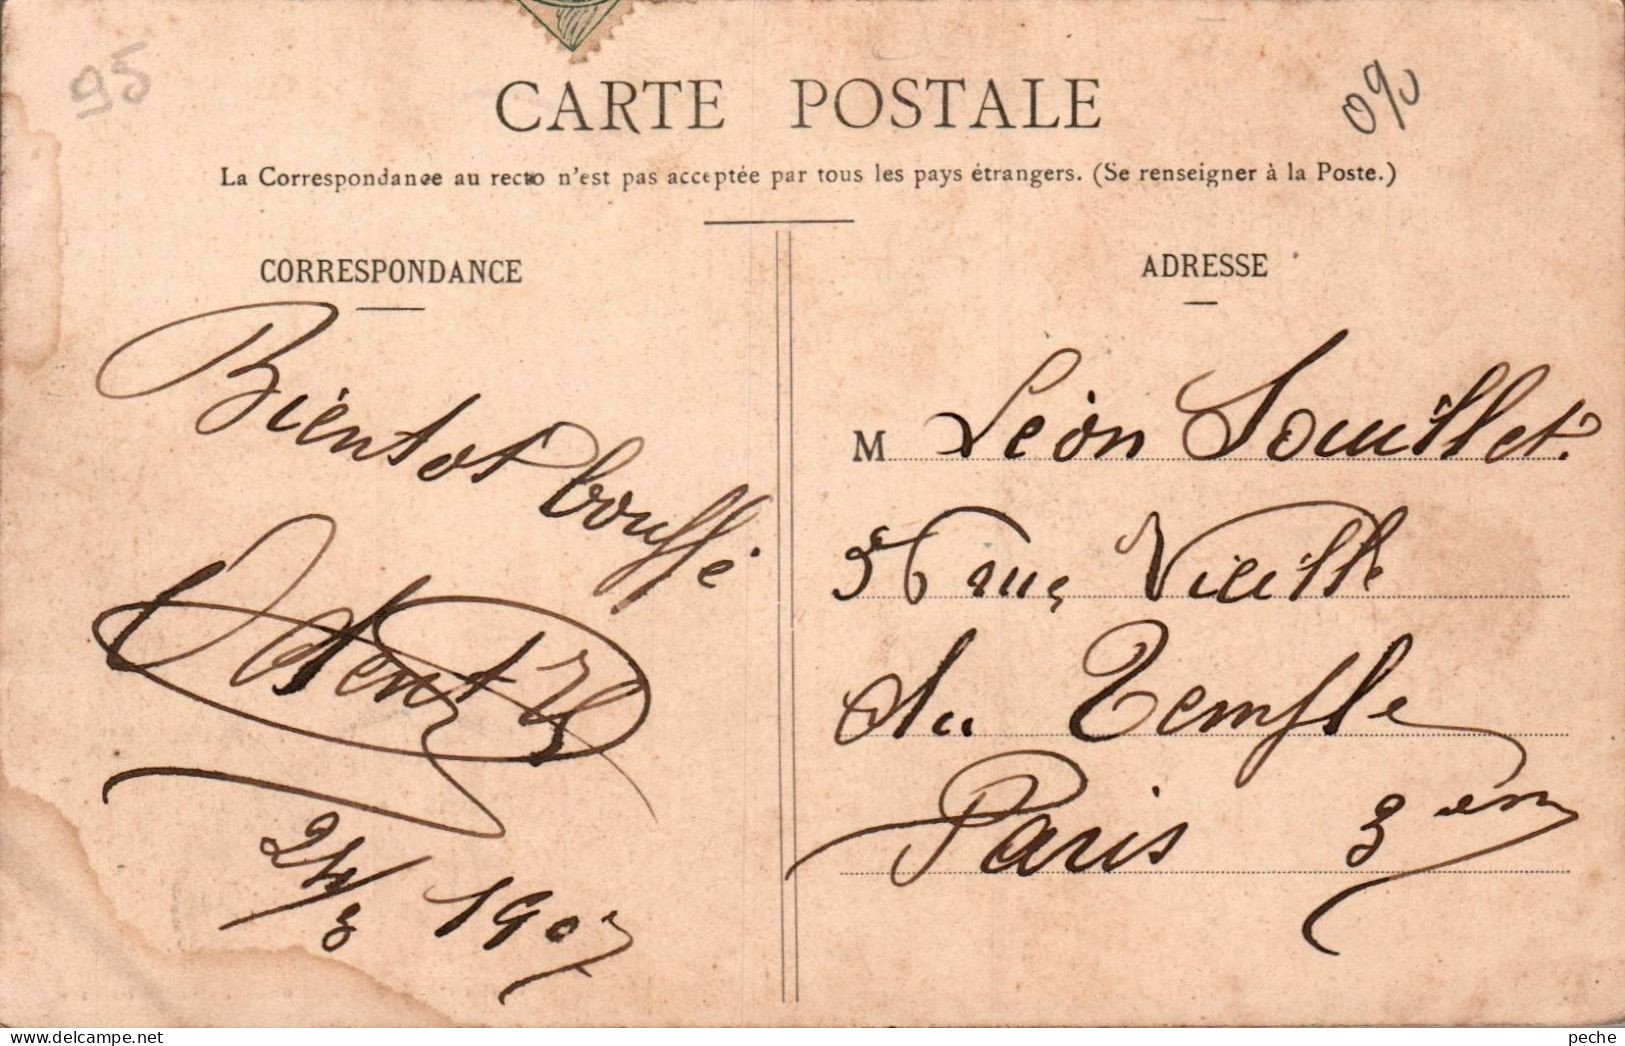 95
CARTE POSTALE
La Correspondance au recto n'est pas acceptée par tous les pays étrangers. (Se renseigner à la Poste.)
CORRESPONDANCE
Bientot bouffé
24/3 1907
ADRESSE
M Léon Souillet.
36 rue Vieille
du Temple
Paris 3em
delcampe.net
peche